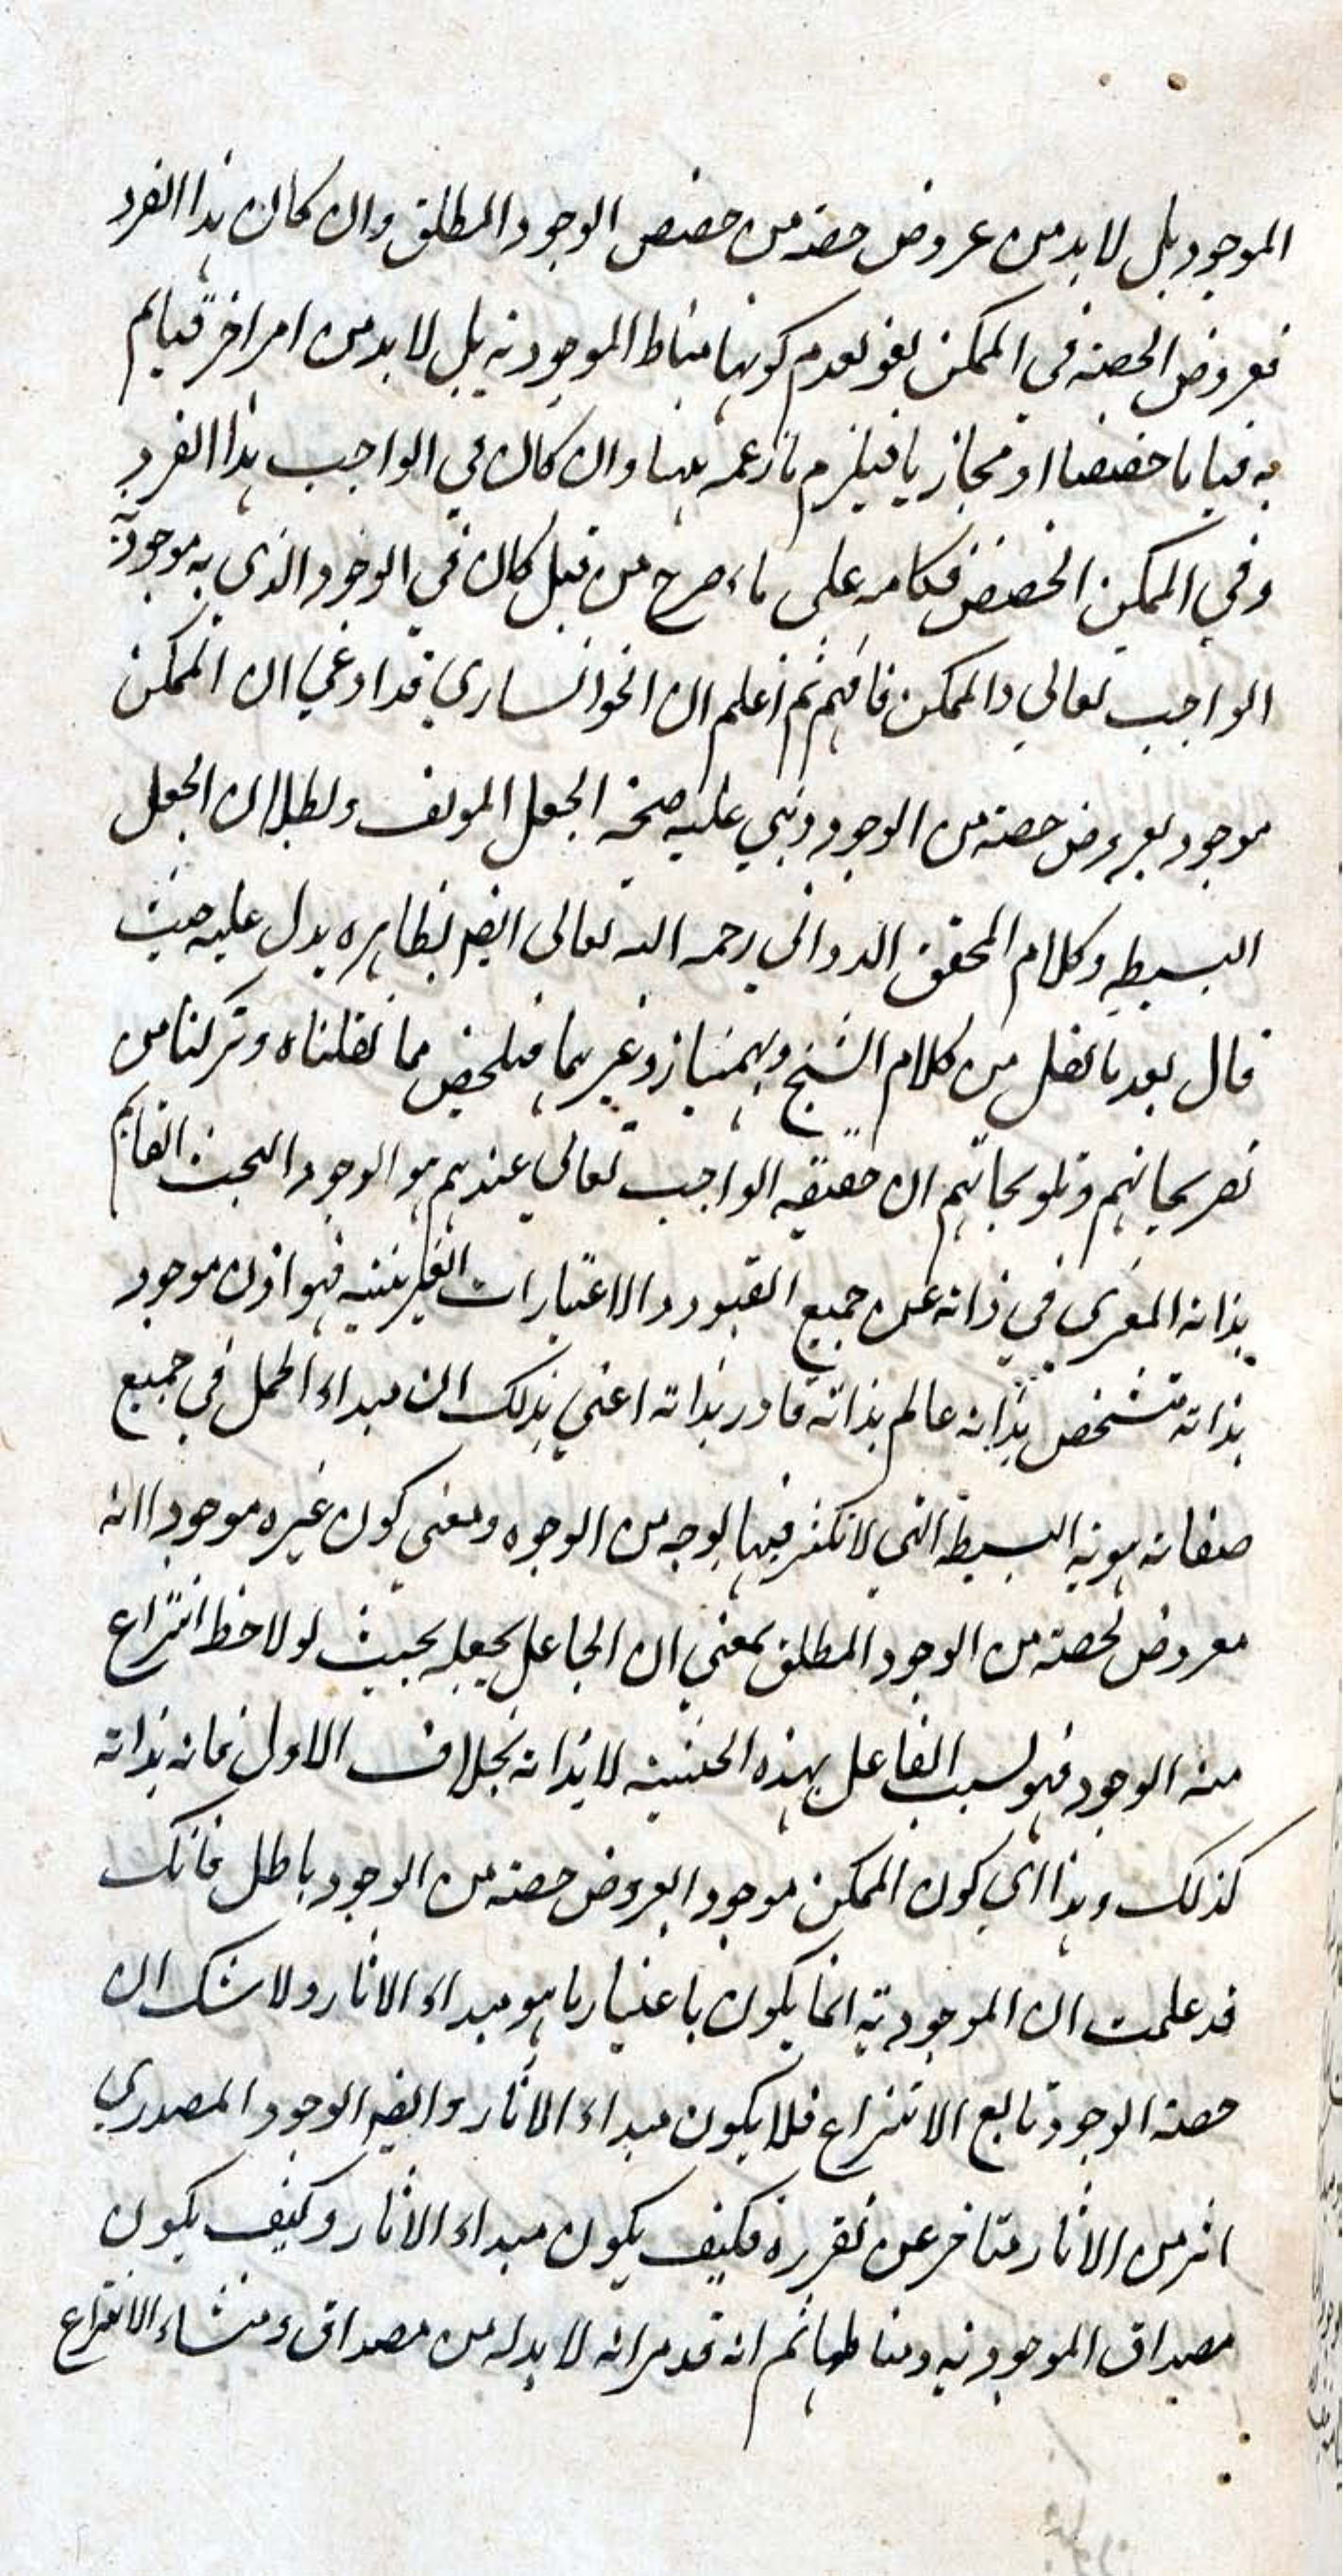 الموجود بل لا بد من عروض حصة من حصص الوجود المطلق وان كان هذا الفرد
فعروض الحصة في الممكن لغو لعدم كونها مناط الموجودية بل لا بد من امر اخر قيايم
به قياما حقيقيا او مجازيا فيلزم ما زعمه ههنا وان كان في الواجب هذا الفرد
وفي الممكن الحصص فكامر على ما صرح من قبل كان في الوجود الذي به موجودية
الواجب تعالى والممكن فافهم ثم اعلم ان الخوانساري قد ادعي ان الممكن
موجود بعروض حصة من الوجود وبني عليه صحة الجعل المولف وبطلان الجعل
البسيط وكلام المحقق الدواني رحمه الله تعالى ايضا بظاهره يدل عليه حيث
قال بعد ما نقل من كلام الشيخ وبهمنيار وغيرهما فيلخص مما نقلناه وتركنا من
تصريحاتهم وتلويحاتهم ان حقيقة الواجب تعالى عندهم هو الوجود البحت القايم
بذاته المعرى في ذاته عن جميع القيود والاعتبارات الغيرينيه فهو اذن موجود
بذاته متشخص بذاته عالم بذاته قادر بذاته اعني بذلك ان مبداء الحمل في جميع
صفاته هويته البسيطة التي لا تكثر فيها بوجه من الوجوه ومعني كون غيره موجودا انه
معروض لحصة من الوجود المطلق بمعني ان الجاعل يجعله بحيث لو لاحظ انتزاع
منه الوجود فهو لسبب الفاعل بهذه الحيثية لا بذاته بخلاف الاول فانه بذاته
كذلك وهذا اي كون الممكن موجودا بعروض حصة من الوجود باطل فانك
قد علمت ان الموجودية انما يكون باعتبار ما هو مبداء الاثار ولا شك ان
حصة الوجود تابع الانتزاع فلا يكون مبداء الاثار وايضا الوجود المصدري
اثر من الاثار متاخر عن تقرره فكيف يكون مبداء الاثار وكيف يكون
مصداق الموجودية ومناطها ثم انه قد مر انه لا بد له من مصداق ومنشاء الانتزاع